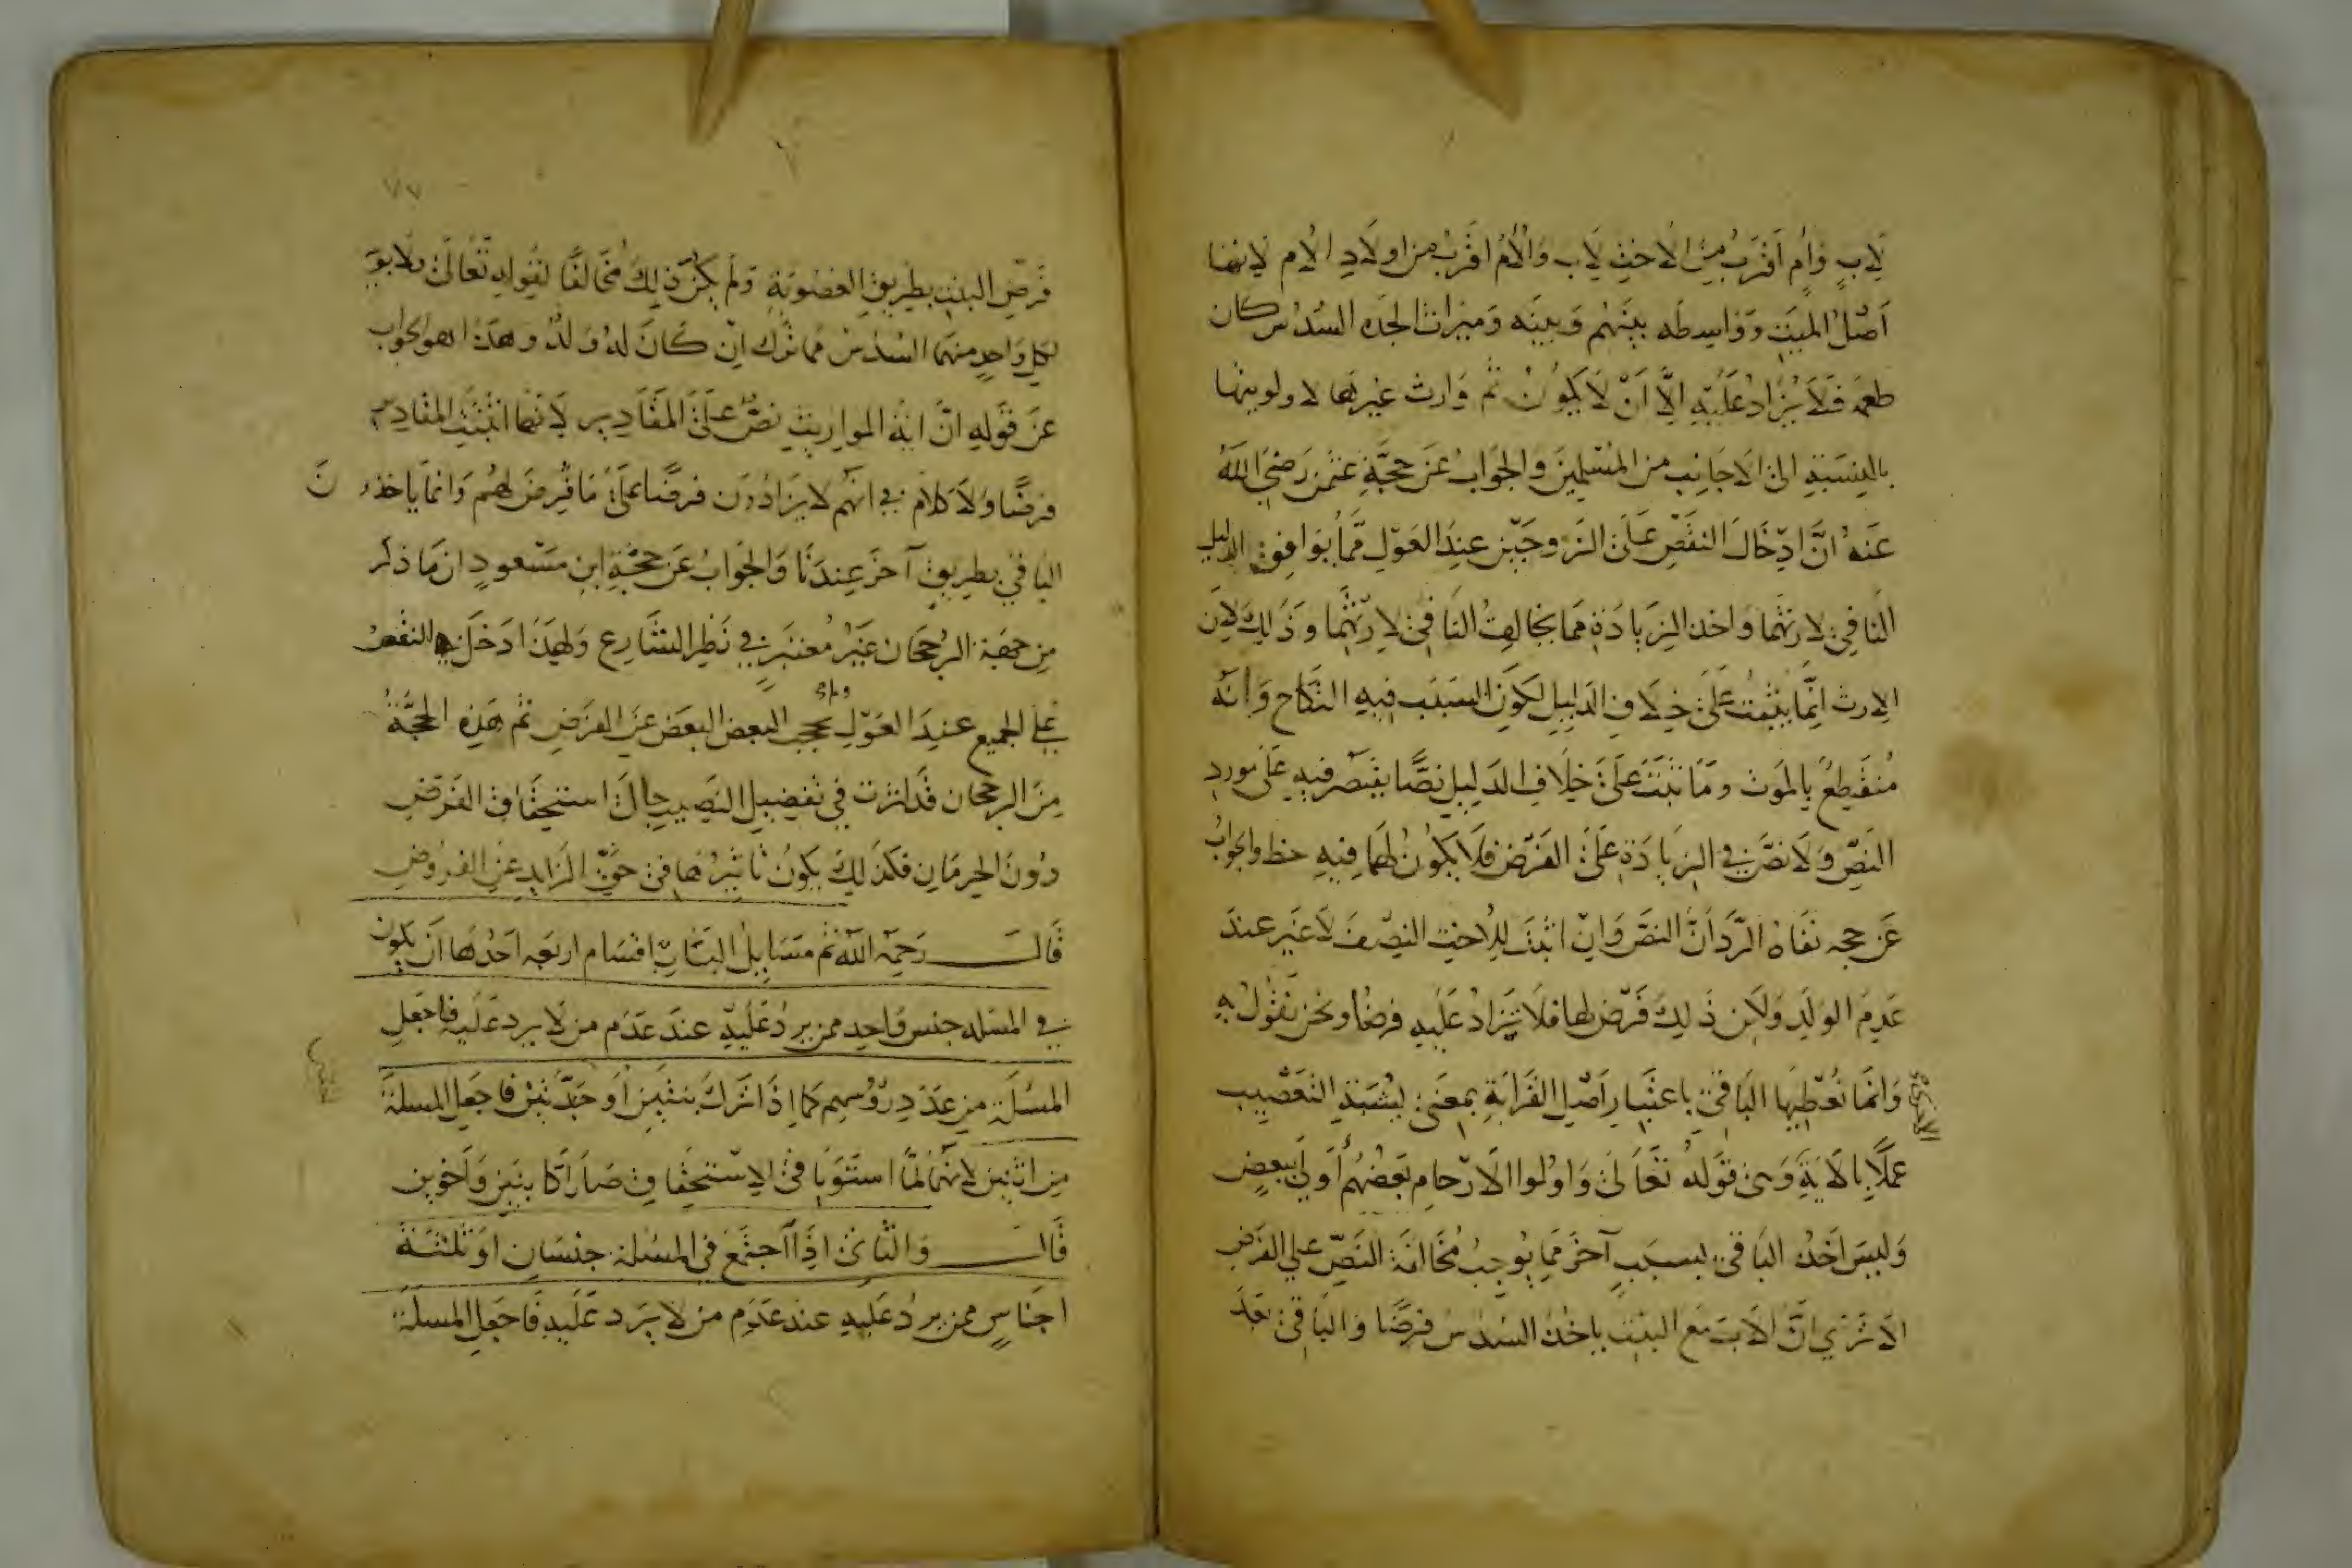 لابٍ وامٍ اَقْرَبُ مِنَ الاخت لاب وَالْأُم اقرَبُ من اولادِ الام لانها
اَصْلُ الميّت وَوَاسِطَه بينَهُم وَبينَه وَميراث الجدّه السُّدُس كان
طعمه فَلاَ يُزاد عَلَيْهِ اِلَّا اَنْ لاَ يَكُونَ ثم وَارث غيرها لاولويتها
بالنِسبَةِ الى الاجَانِب من المسْلِمينَ والجوابُ عَن حجَّةِ عثمن رَضِيَ اللّٰهُ
عَنهُ انَّ ادِخَالَ النقص عَلى الزوجَيْن عِندَ العَوْل ممَّا يُوَافِق الدليل
النَّافي لارثهمَا وَاخذ الزيَادَة مما يخالف النَافى لارثهِمَا وَذَلِكَ لاِن
الارث اِنَّما يثبتُ عَلىَ خِلاف الدَلِيلِ لكَوِن السَبَب فيهِ النكَاح وَانَّه
مُنقَطِعٌ بالمَوت ومَا ثَبَتَ عَلىَ خِلافِ الدَلِيل نصًّا يقتصَر فيهِ عَلى مورد
النَصِّ وَلاَ نصَّ في الزيَادَة عَلىَ الفَرْض فلاَ يكُونُ لهَمَا فِيهِ حظ والجوابُ
عَن حجه نفَاة الرَّد اَنَّ النصَّ وَان اثبت للاُخت النصْفَ لاَغَير عندَ
عَدِم الوَلَدِ وَلاَن ذَلِكَ فَرْض لها فلاَ يُزَادُ عَلَيهِ فرضًا ونحن نقُولُ بهِ
وَانمَّا نُعْطِيهَا البَاقي باعتبارِ اَصْل القَرَابَةِ بمعنَى يُشْبِهُ التَعْصِيب
عملاً بالآيَةِ وَهى قَولهُ تعَالىَ وَاوُلوا الاَرْحام بَعضُهُم أَولىَ ببعضٍ
وَليسَ اَخْذُ البَاقي بسبَبٍ آخَر مما يُوجِبُ مُخَالفَة النَصِّ على الفَرض
الاَ تَرَي انَّ الاَبَ مَعَ البنت ياخُذُ السُدُس فرضًا وَالبَاقي بَعدَ
فَرضِ البنتِ بطرِيقِ العصُوبَةِ وَلَم يَكُن ذَلِكَ مُخَالفًا لقولِهِ تَعَالىَ ولابوَيهِ
لكلِّ وَاحِدٍ منهمَا السُدُسُ مما تَرَك ان كَانَ لهُ وَلدٌ وَهَذا هو الجواب
عَن قَولِهِ انَّ ايَة المواريث نَصٌّ عَلىَ المقَادِير لاَنها اثبتَت المقادير
فرضًا وَلاَ كلامَ في انَّهُم لا يُزَادُون فرضًا على مَا فُرِضَ لهُم وَانمَا ياخذُون
البَاقي بطرِيقٍ آخَر عِندَنَا وَالجوَابُ عَن حجَّةِ ابن مَسْعودٍ انَّ مَا ذكر
مِن جهَة الرجحَان غَيْرُ معتبَرٍ في نَظر الشَّارِع وَلهَذَا دَخَلَ النقصُ
عَلى الجميع عنِدَ العَوْل ولم يحجب البعض البعَض عَن الفَرَض ثم هَذِهِ الحجَّةُ
مِن الرجحان قَد اثرَت في تفضيِل النَصِيبِ حَال استِحقَاق الفَرْض
دُونَ الحِرمَانِ فكَذَلِكَ يكون تَاثيرُهَا في حقِّ الزايد عَن الفرُوض
قَالَ رَحِمَه اللّٰه ثم مَسَايِلُ البَاب اقسَام اربعَه احَدُهَا اَن يكون
في المسَله جنس وَاحد ممن يردُ عَلَيْهِ عندَ عَدَم من لا يرد عَلَيهِ فاجعَل
المسْلة من عَدَدِ رؤُسهم كما اِذَا تَركَ بنتَين أَو جَدَّتَين فَاجعَل المسلَة
مِن اثنين لانَّهمَا لمَّا استَوَيَا في الاِسْتحقَاق صَارَا كابنَين وَاَخوين
قَال وَالثاني اذَا اجتَمَعَ في المسُلة جنسَانِ اوَ ثَلثَة
اجنَاسٍ ممن يردُ عَليهِ عندَ عَدَم من لا يرَد عَليهِ فاجعَل المسلَة